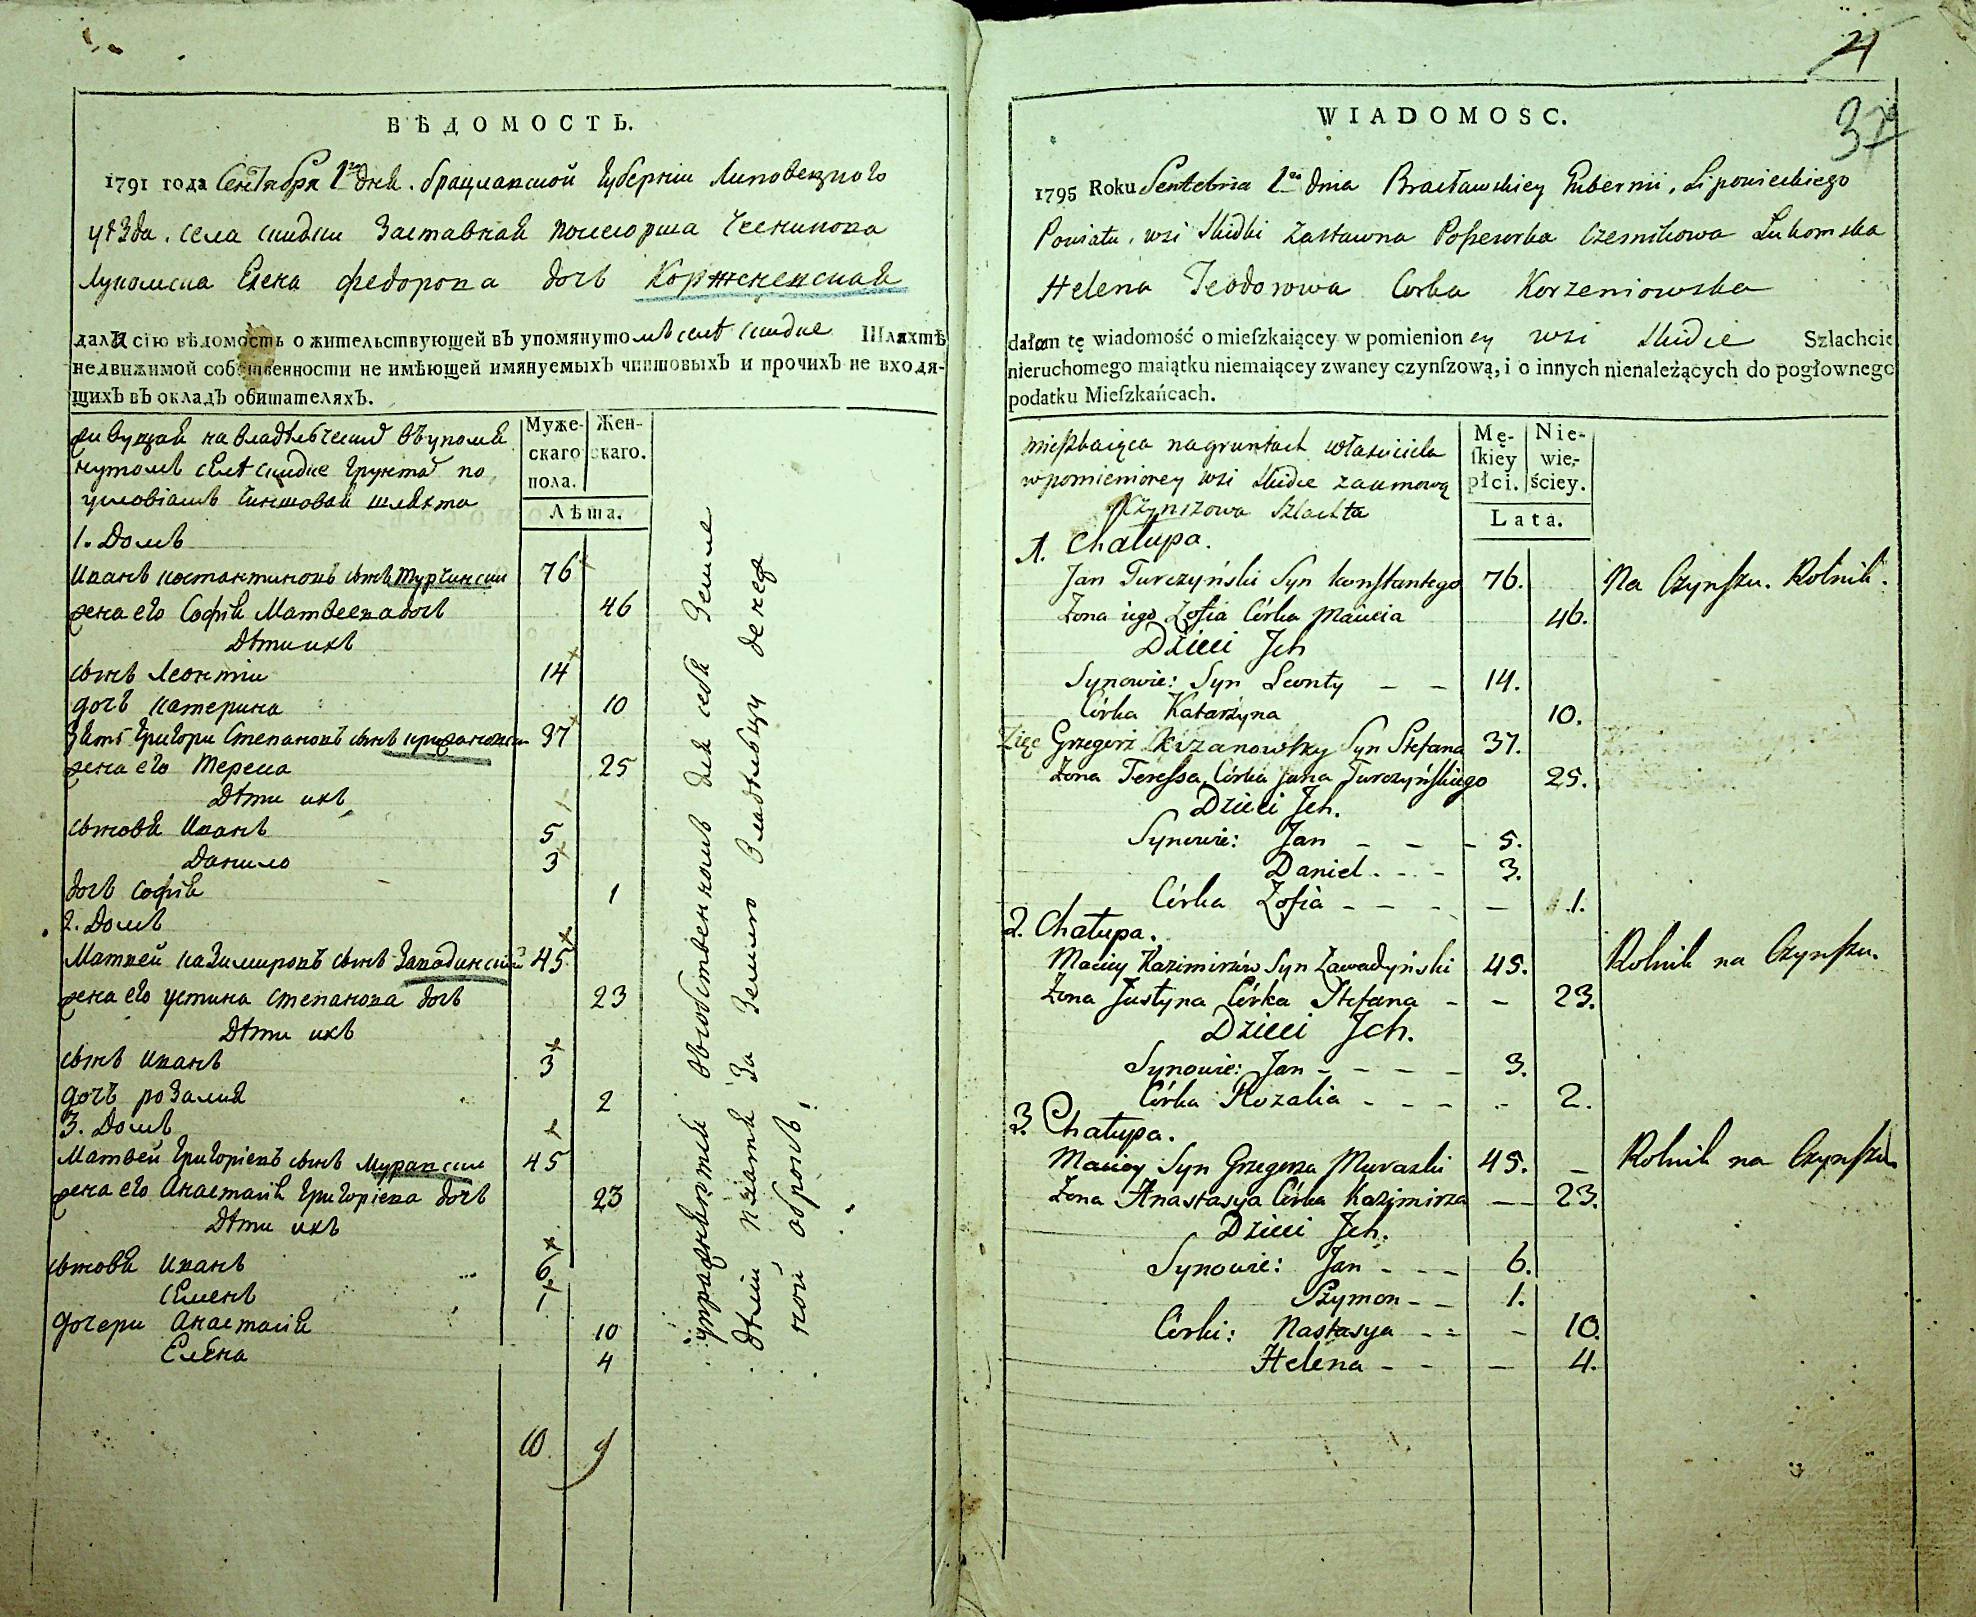 ВѢДОМОСТЬ.
1791 года Сентября 1го дня. брацлавской губернiи Липовецкого
уѣзда. села скидки Заставная поссесорша Чесникова
Лукомска Елена Федорова дочь Корженевская
дала сiю вѣдомость о жительствующей въ упомянутомъ селѣ скидке Шляхтѣ
недвижимой собственности не имѣющей имянуемыхъ чиншовыхъ и прочихъ не входя-
щихъ въ окладъ обитателяхъ.
живущая на владѣльческих въупомя
нутомъ селѣ скидке грунтах по
условiямъ чиншовая шляхта
Муже-
скаго
пола.
Жен-
скаго.
Лѣта.
1. Домъ
Иванъ костантиновъ сынъ Турчински 76
жена его Софiя Матвеева дочь 46
Дѣти ихъ
сынъ Леонтiи 14
дочъ катерина 10
Зять Григори Степановъ сынъ крижановски 37
жена его Тереса 25
Дѣти ихъ
сыновя Иванъ 5
Данило 3
дочь софiя 1
2. Домъ
Матвей казимировъ сынъ Завадинский 45
жена его устина степанова дочь 23
Дѣти ихъ
сынъ Иванъ 3
дочъ розалия 2
3. Домъ
Матвей Григорiевъ сынъ Муравски 45
жена его Анастасiя Григорiева дочь 23
Дѣти ихъ
сыновя Иванъ 6
Семенъ 1
дочери Анастасiя 10
Елена 4
10 9
упражняются вхозяйственномъ для себя Земле
дѣлiи платя За Землю Владѣльцу денеж
ной оброкъ.
4
37
WIADOMOSC.
1795 Roku Sentebria 1go Dnia Bracławskiey Gubernii, Lipowieckiego
Powiatu, wsi Skidki Zastawna Possesorka Czesnikowa Łukomska
Helena Teodorowa Corka Korzeniowska
dałam tę wiadomość o mieſzkaiącey w pomienioney wsi Skidce Szlachcie
nieruchomego maiątku niemaiącey zwaney czynſzową, i o innych nienależących do pogłownego
podatku Mieſzkańcach.
mieszkaiąca na gruntach właściciela
w pomienioney wsi Skidce za umową
Czynszowa Szlachta
Mę-
ſkiey
płci.
Nie-
wie-
ściey.
Lata.
1. Chałupa.
Jan Turczyński Syn konstantego 76. Na Czynſzu. Rolnik.
Zona iego Zofia Córka Macieia 46.
Dzieci Ich
Synowie: Syn Leonty – – 14.
Córka Katarzyna 10.
Zięć Grzegorz Krzanowsky Syn Stefana 37.
Zona Teressa Córka Jana Turczyńskiego 25.
Dzieci Ich.
Synowie: Jan – – – 5.
Daniel – – – 3.
Córka Zofia – – – – 1.
2. Chałupa.
Maciey Kazimirzów Syn Zawadyński 45. Rolnik na Czynſzu.
Zona Justyna Córka Stefana – – 23.
Dzieci Ich.
Synowie: Jan – – – – 3.
Córka Rozalia – – – – 2.
3. Chałupa.
Maciey Syn Grzegorza Muraski 45. – Rolnik na Czynſzu
Zona Anastasya Córka Kazimirza – – 23.
Dzieci Ich.
Synowie: Jan – – – 6.
Szymon – – 1.
Córki: Nastasya – – – 10.
Helena – – – 4.